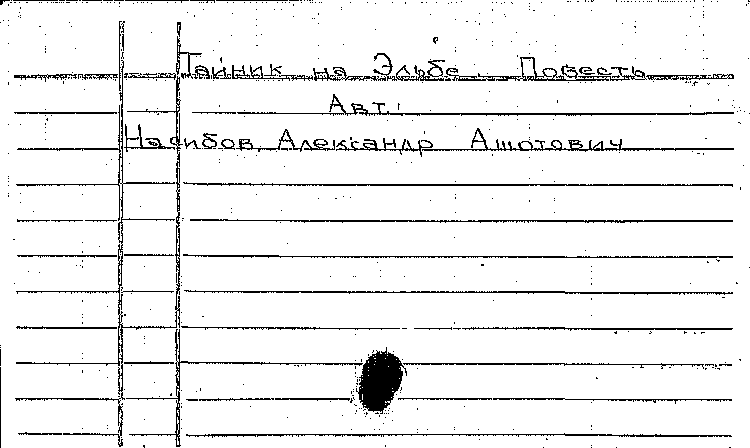 Тайник на Эльбе. Повесть
Авт.:
Насибов, Александр Ашотович